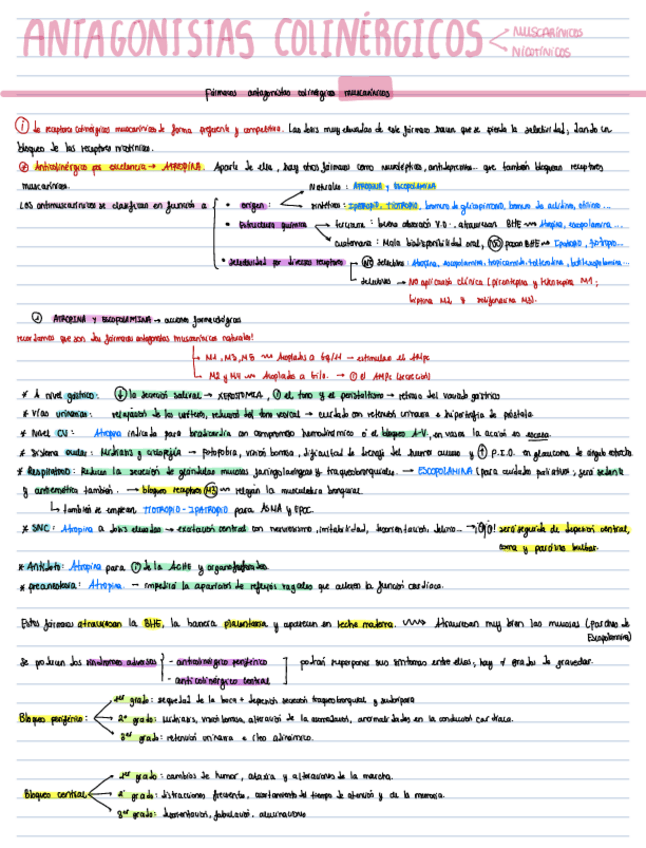 ANTAGONISTAS COLINÉRGICOS
MUSCARÍNICOS
NICOTÍNICOS
Fármacos antagonistas colinérgicos muscarínicos
receptores colinérgicos muscarínicos de forma preferente y competitiva. Las dosis muy elevadas de este fármaco hacen que se pierda la selectividad, dando un
bloqueo de los receptores nicotínicos.
Anticolinérgico por excelencia → ATROPINA. Aparte de ella, hay otros fármacos como neurolépticos, antidepresivos... que también bloquean receptores
muscarínicos.
Los antimuscarínicos se clasifican en función a
• origen:
Naturales: ATROPINA y ESCOPOLAMINA
sintéticos: IPATROPIO, TIOTROPIO, bromuro de
• Estructura química
terciaria: buena absorción V.O., atraviesan BHE → Atropina, escopolamina...
cuaternaria: Mala biodisponibilidad oral, NO pasan BHE → Ipatropio, tiotropio...
• Selectividad por diversos receptores
NO selectivos: Atropina, escopolamina, tropicamida, tolterodina, butilescopolamina...
selectivos → NO aplicación clínica (pirenzepina y telenzepina M1;
M2 y M3).
ATROPINA y ESCOPOLAMINA → acciones farmacológicas
recordamos que son los fármacos antagonistas muscarínicos naturales!
M1, M3, M5 → Acoplados a Gq/11 → estimulan el
M2 y M4 → Acoplado a Gi/o. →
* A nivel gástrico: ↓ la secreción salival → XEROSTOMIA, ↓ el tono y el peristaltismo → retraso del vaciado gástrico
* Vías urinarias: relajación de los uréteres, reducción del tono vesical → cuidado con retención urinaria e hipertrofia de próstata.
* Nivel CV: Atropina indicada para bradicardia con compromiso hemodinámico o el bloqueo A-V, en vasos la acción es escasa.
* Sistema ocular: Midriasis y cicloplejia → fotofobia, visión borrosa, dificultad de drenaje del humor acuoso y ↑ P.I.O. en glaucoma de ángulo estrecho
* Respiratorio: Reduce la secreción de glándulas mucosas faringolaríngeas y traqueobronquiales. → ESCOPOLAMINA (para cuidados paliativos, será sedante
y antiemética también. → bloqueo receptores M3 → relajan la musculatura bronquial.
también se emplean TIOTROPIO - IPATROPIO para ASMA y EPOC.
* SNC: Atropina a dosis elevadas → excitación central con nerviosismo, irritabilidad, desorientación, delirio → ¡Ojo! será seguida de depresión central,
coma y parálisis bulbar.
* Antídoto: Atropina para de la ACHE y organofosforados.
* preanestesia: Atropina → impedirá la aparición de reflejos vagales que alteren la función cardíaca.
Estos fármacos atraviesan la BHE, la barrera placentaria y aparecen en leche materna. → Atraviesan muy bien las mucosas (parches de
Escopolamina)
Se producen dos síndromes adversos
- anticolinérgico periférico
- anticolinérgico central
podrán superponer sus síntomas entre ellos, hay grados de gravedad.
Bloqueo periférico:
1er grado: sequedad de la boca + depresión secreción traqueobronquial y sudorípara
2º grado: Midriasis, visión borrosa, alteración de la acomodación, anormalidades en la conducción cardíaca.
3er grado: retención urinaria e íleo adinámico.
Bloqueo central
1er grado: cambios de humor, ataxia y alteraciones de la marcha.
2º grado: distracciones frecuentes, acortamiento del tiempo de atención y de la memoria.
3er grado: desorientación, fabulación, alucinaciones